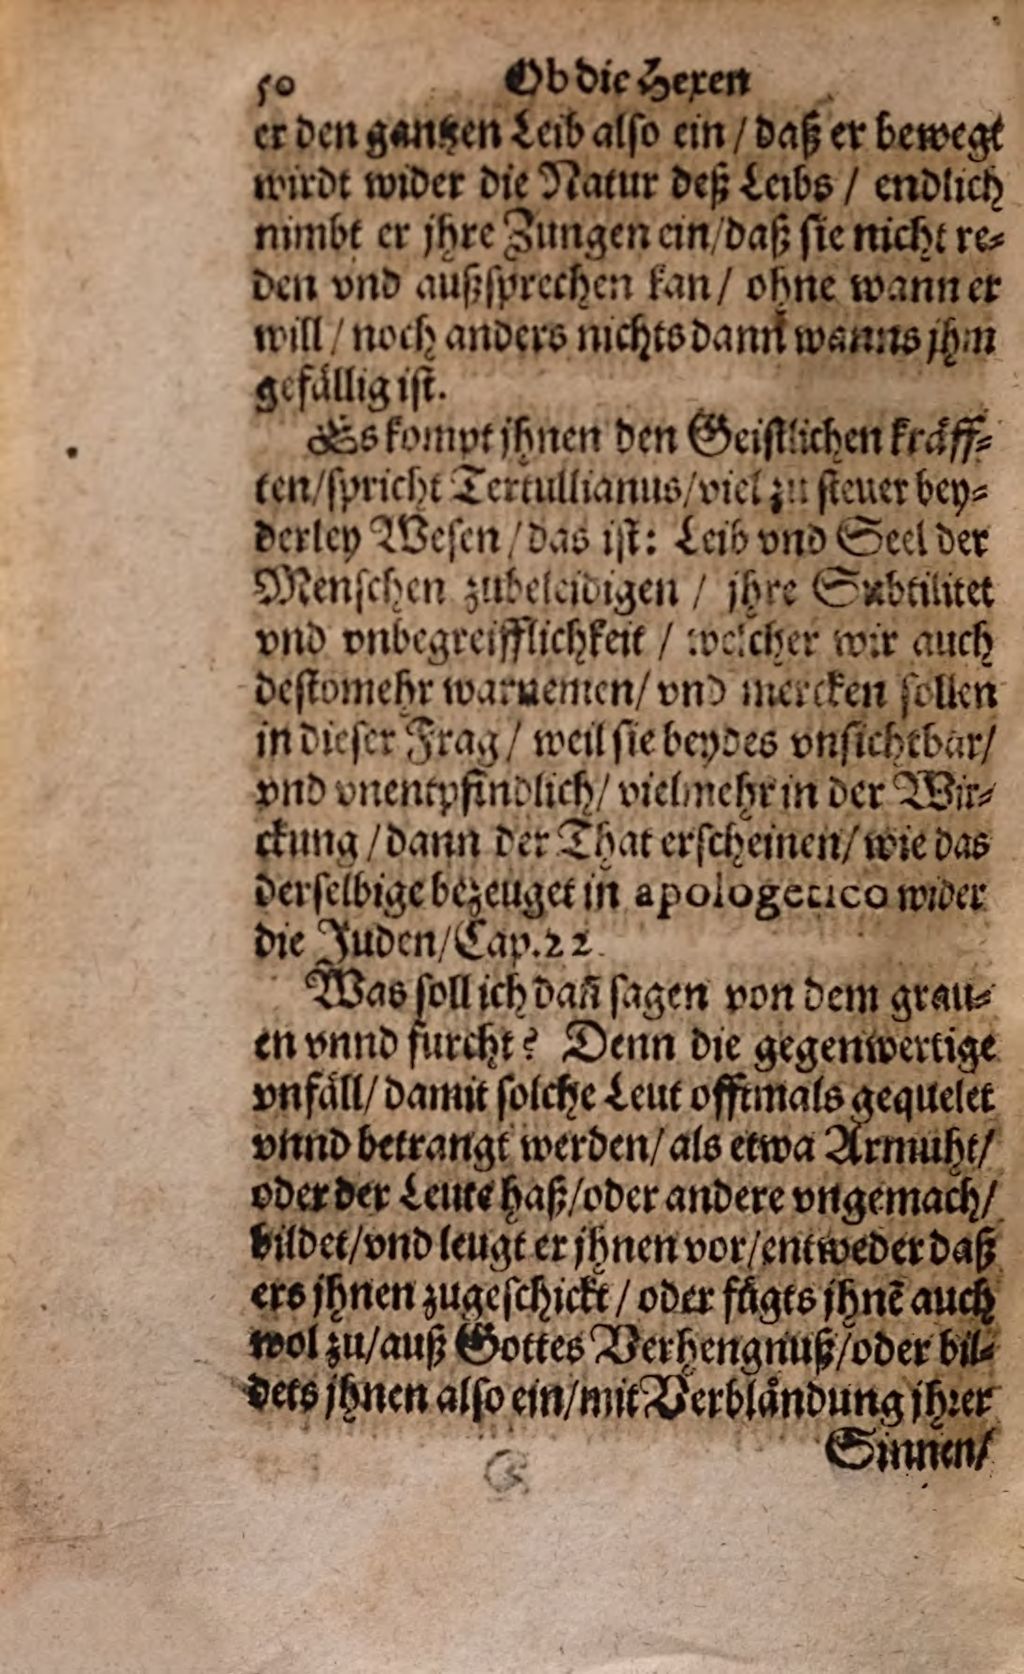 50 Ob die Hexen
er den gantzen Leib also ein / daß er bewegt
wirdt wider die Natur deß Leibs / endlich
nimbt er jhre Zungen ein/daß sie nicht re⸗
den vnd außsprechen kan / ohne wann er
will / noch anders nichts dann wanns jhm
gefällig ist.
Es kompt jhnen den Geistlichen kräff⸗
ten/spricht Tertullianus/viel zu steuer bey⸗
derley Wesen / das ist: Leib vnd Seel der
Menschen zubeleidigen / jhre Subtilitet
vnd vnbegreifflichkeit / welcher wir auch
destomehr warnemen/ vnd mercken sollen
in dieser Frag / weil sie beydes vnsichtbar/
vnd vnentpfindlich/ vielmehr in der Wir⸗
ckung / dann der That erscheinen/ wie das
derselbige bezeuget in apologetico wider
die Juden/Cap.22.
Was soll ich dañ sagen von dem grau⸗
en vnnd furcht? Denn die gegenwertige
vnfäll/ damit solche Leut offtmals gequelet
vnnd betrangt werden/ als etwa Armuht/
oder der Leute haß/oder andere vngemach/
bildet/vnd leugt er jhnen vor/entweder daß
ers jhnen zugeschickt / oder fügts jhnẽ auch
wol zu/auß Gottes Verhengnuß/oder bil⸗
dets jhnen also ein/mit Verbländung jhrer
Sinnen/